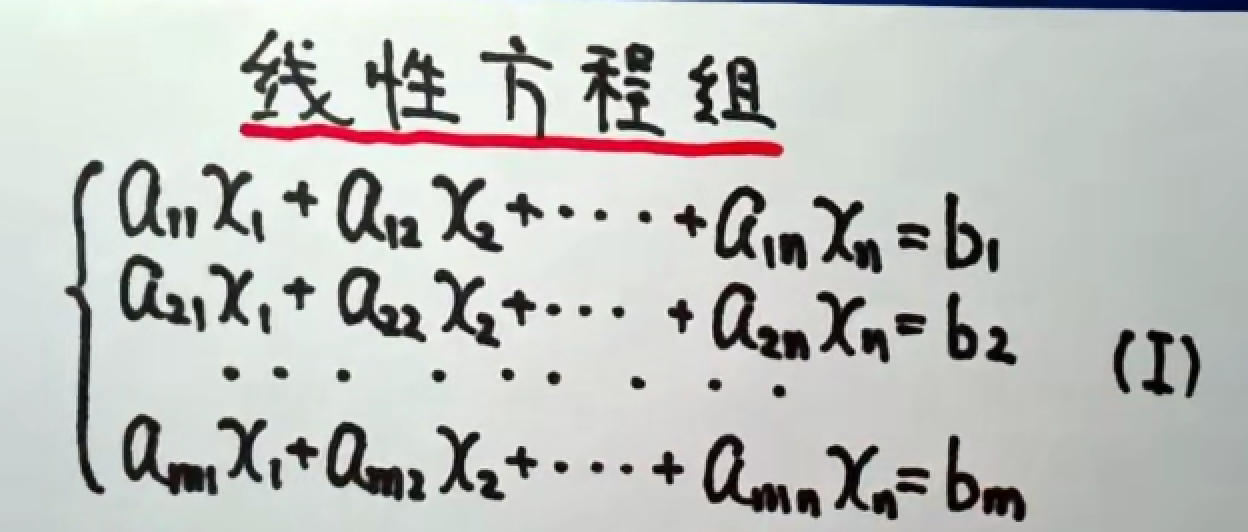 线性方程组
a₁₁x₁ + a₁₂x₂ + ···· + a₁ₙxₙ = b₁
a₂₁x₁ + a₂₂x₂ + ···· + a₂ₙxₙ = b₂ (I)
· · · · · · · · ·
aₘ₁x₁ + aₘ₂x₂ + ···· + aₘₙxₙ = bₘ